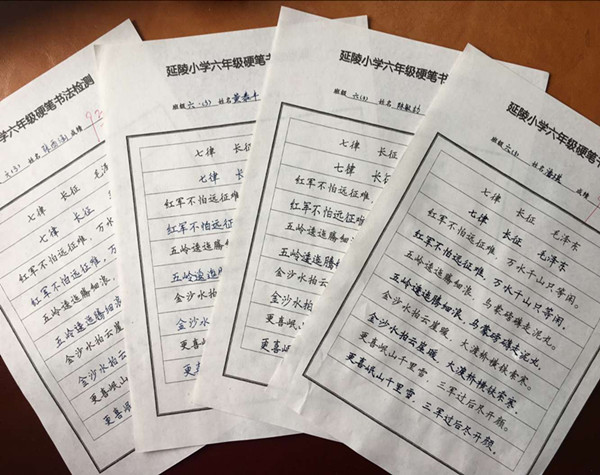 小学六年级硬笔书法检测
姓名
成绩
92
七律 长征 毛泽
七律 长征 毛
红军不怕远征难,万水
红军不怕远征难,万水
五岭逶迤腾细浪
五岭逶迤腾细浪
金沙水拍云崖
金沙水拍云崖
更喜岷山
更喜岷
延陵小学六年级硬笔书
班级 六.(3) 姓名
七律 长
七律 长
红军不怕远征难
红军不怕远征难
五岭逶迤腾细
五岭逶迤腾
金沙水拍云
金沙水拍
更喜岷山
更喜岷
延陵小学六年级硬笔书
班级 六(3) 姓名
七律 长征
七律 长
红军不怕远征难,
红军不怕远征难
五岭逶迤腾细浪
五岭逶迤腾细
金沙水拍云
金沙水拍云
更喜岷山
更喜岷
延陵小学六年级硬笔书
班级 六(3) 姓名 成绩
七律 长征 毛泽东
七律 长征 毛泽东
红军不怕远征难,万水千山只等闲。
红军不怕远征难,万水千山只等闲。
五岭逶迤腾细浪,乌蒙磅礴走泥丸。
五岭逶迤腾细浪,乌蒙磅礴走泥丸。
金沙水拍云崖暖,大渡桥横铁索寒。
金沙水拍云崖暖,大渡桥横铁索寒。
更喜岷山千里雪,三军过后尽开颜。
更喜岷山千里雪,三军过后尽开颜。